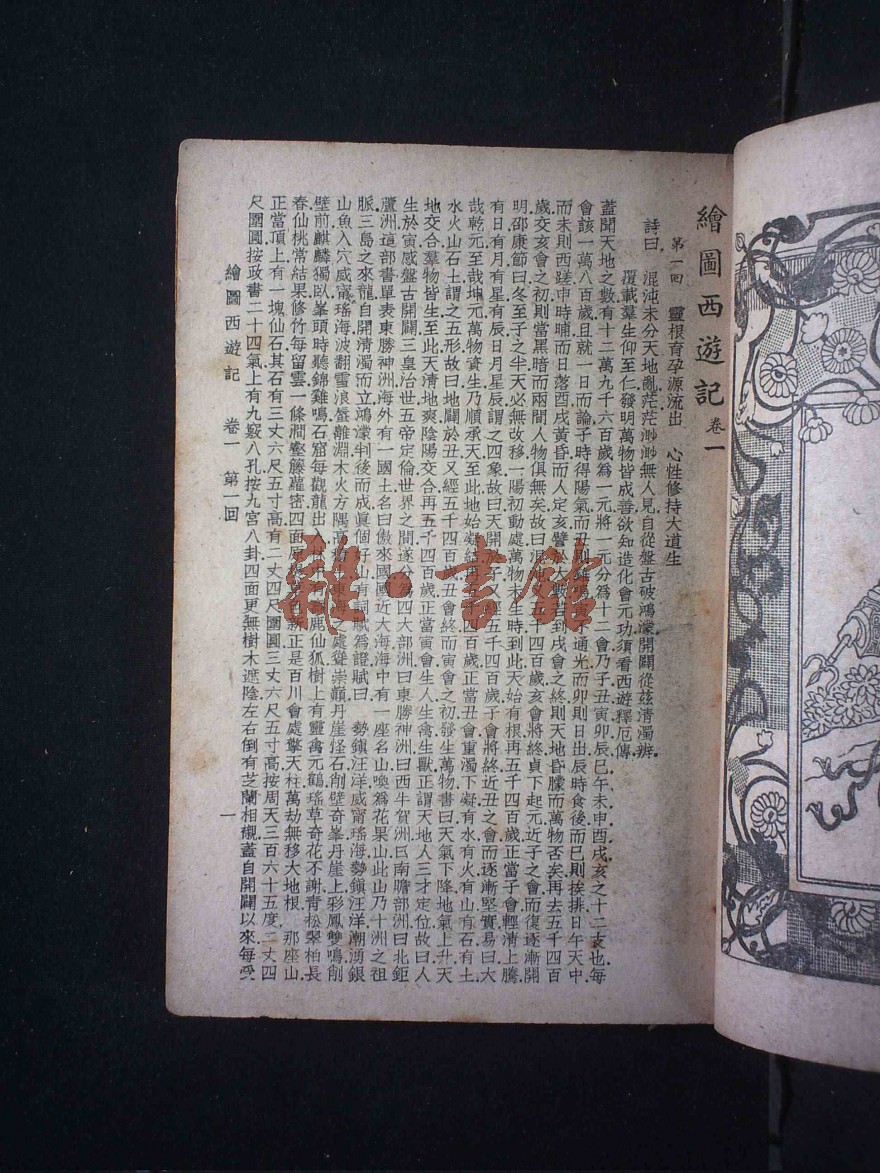 繪圖西遊記 卷一
第一回 靈根育孕源流出 心性修持大道生
詩曰 混沌未分天地亂茫茫渺渺無人見自從盤古破鴻濛開闢從茲清濁辨
覆載羣生仰至仁發明萬物皆成善欲知造化會元功須看西遊釋厄傳
蓋聞天地之數有十二萬九千六百歲爲一元將一元分爲十二會乃子丑寅卯辰巳午未申酉戌亥之十二支也每
會該一萬八百歲且就一日而論子時得陽氣而丑則雞鳴寅不通光而卯則日出辰時食後而巳則挨排日午天中
而未則西蹉申時晡而日落酉戌黃昏而人定亥譬於大數若到戌會之終則天地昏曚而萬物否矣再去五千四百
歲交亥會之初則當黑暗而兩間人物俱無矣故曰混沌又五千四百歲亥會將終貞下起元近子之會而復逐漸開
明邵康節曰冬至子之半天必無改移一陽初動處萬物未生時到此天始有根再五千四百歲正當子會輕清上騰
有日有月有星有辰日月星辰謂之四象故曰天開於子又經五千四百歲子會將終近丑之會而逐漸堅實易曰大
哉乾元至哉坤元萬物資生乃順承天至此地始凝結再五千四百歲正當丑會重濁下凝有水有火有山有石有土
水火山石土謂之五形故曰地闢於丑又經五千四百歲丑會終而寅會之初發生萬物書曰天氣下降地氣上升天
地交合羣物皆生至此天清地爽陰陽交合再五千四百歲正當寅會生人生禽生獸正謂天地人三才定位故曰人
生於寅感盤古開闢三皇治世五帝定倫世界之間遂分爲四大部洲曰東勝神洲曰西牛賀洲曰南贍部洲曰北鉅
蘆洲這部書單表東勝神洲海外有一國土名曰傲來國國近大海海中有一座名山喚爲花果山此山乃十洲之祖
脈三島之來龍自開清濁而立鴻濛判後而成眞個好山有詞賦爲證賦曰 勢鎭汪洋威甯瑤海勢鎭汪洋潮湧銀
山魚入穴威甯瑤海波翻雪浪蜃離淵木火方隅高積土東海之處聳崇巔丹崖怪石削壁奇峯丹崖上彩鳳雙鳴削
壁前麒麟獨臥峯頭時聽錦雞鳴石窟每觀龍出入林中有壽鹿仙狐樹上有靈禽元鶴瑤草奇花不謝青松翠柏長
春仙桃常結果修竹每留雲一條澗壑藤蘿密四面原堤草色新正是百川會處擎天柱萬劫無移大地根 那座山
正當頂上有一塊仙石其石有三丈六尺五寸高有二丈四尺圍圓三丈六尺五寸高按周天三百六十五度二丈四
尺圍圓按政書二十四氣上有九竅八孔按九宮八卦四面更無樹木遮陰左右倒有芝蘭相襯蓋自開闢以來每受
繪圖西遊記 卷一 第一回 一
雜·書館